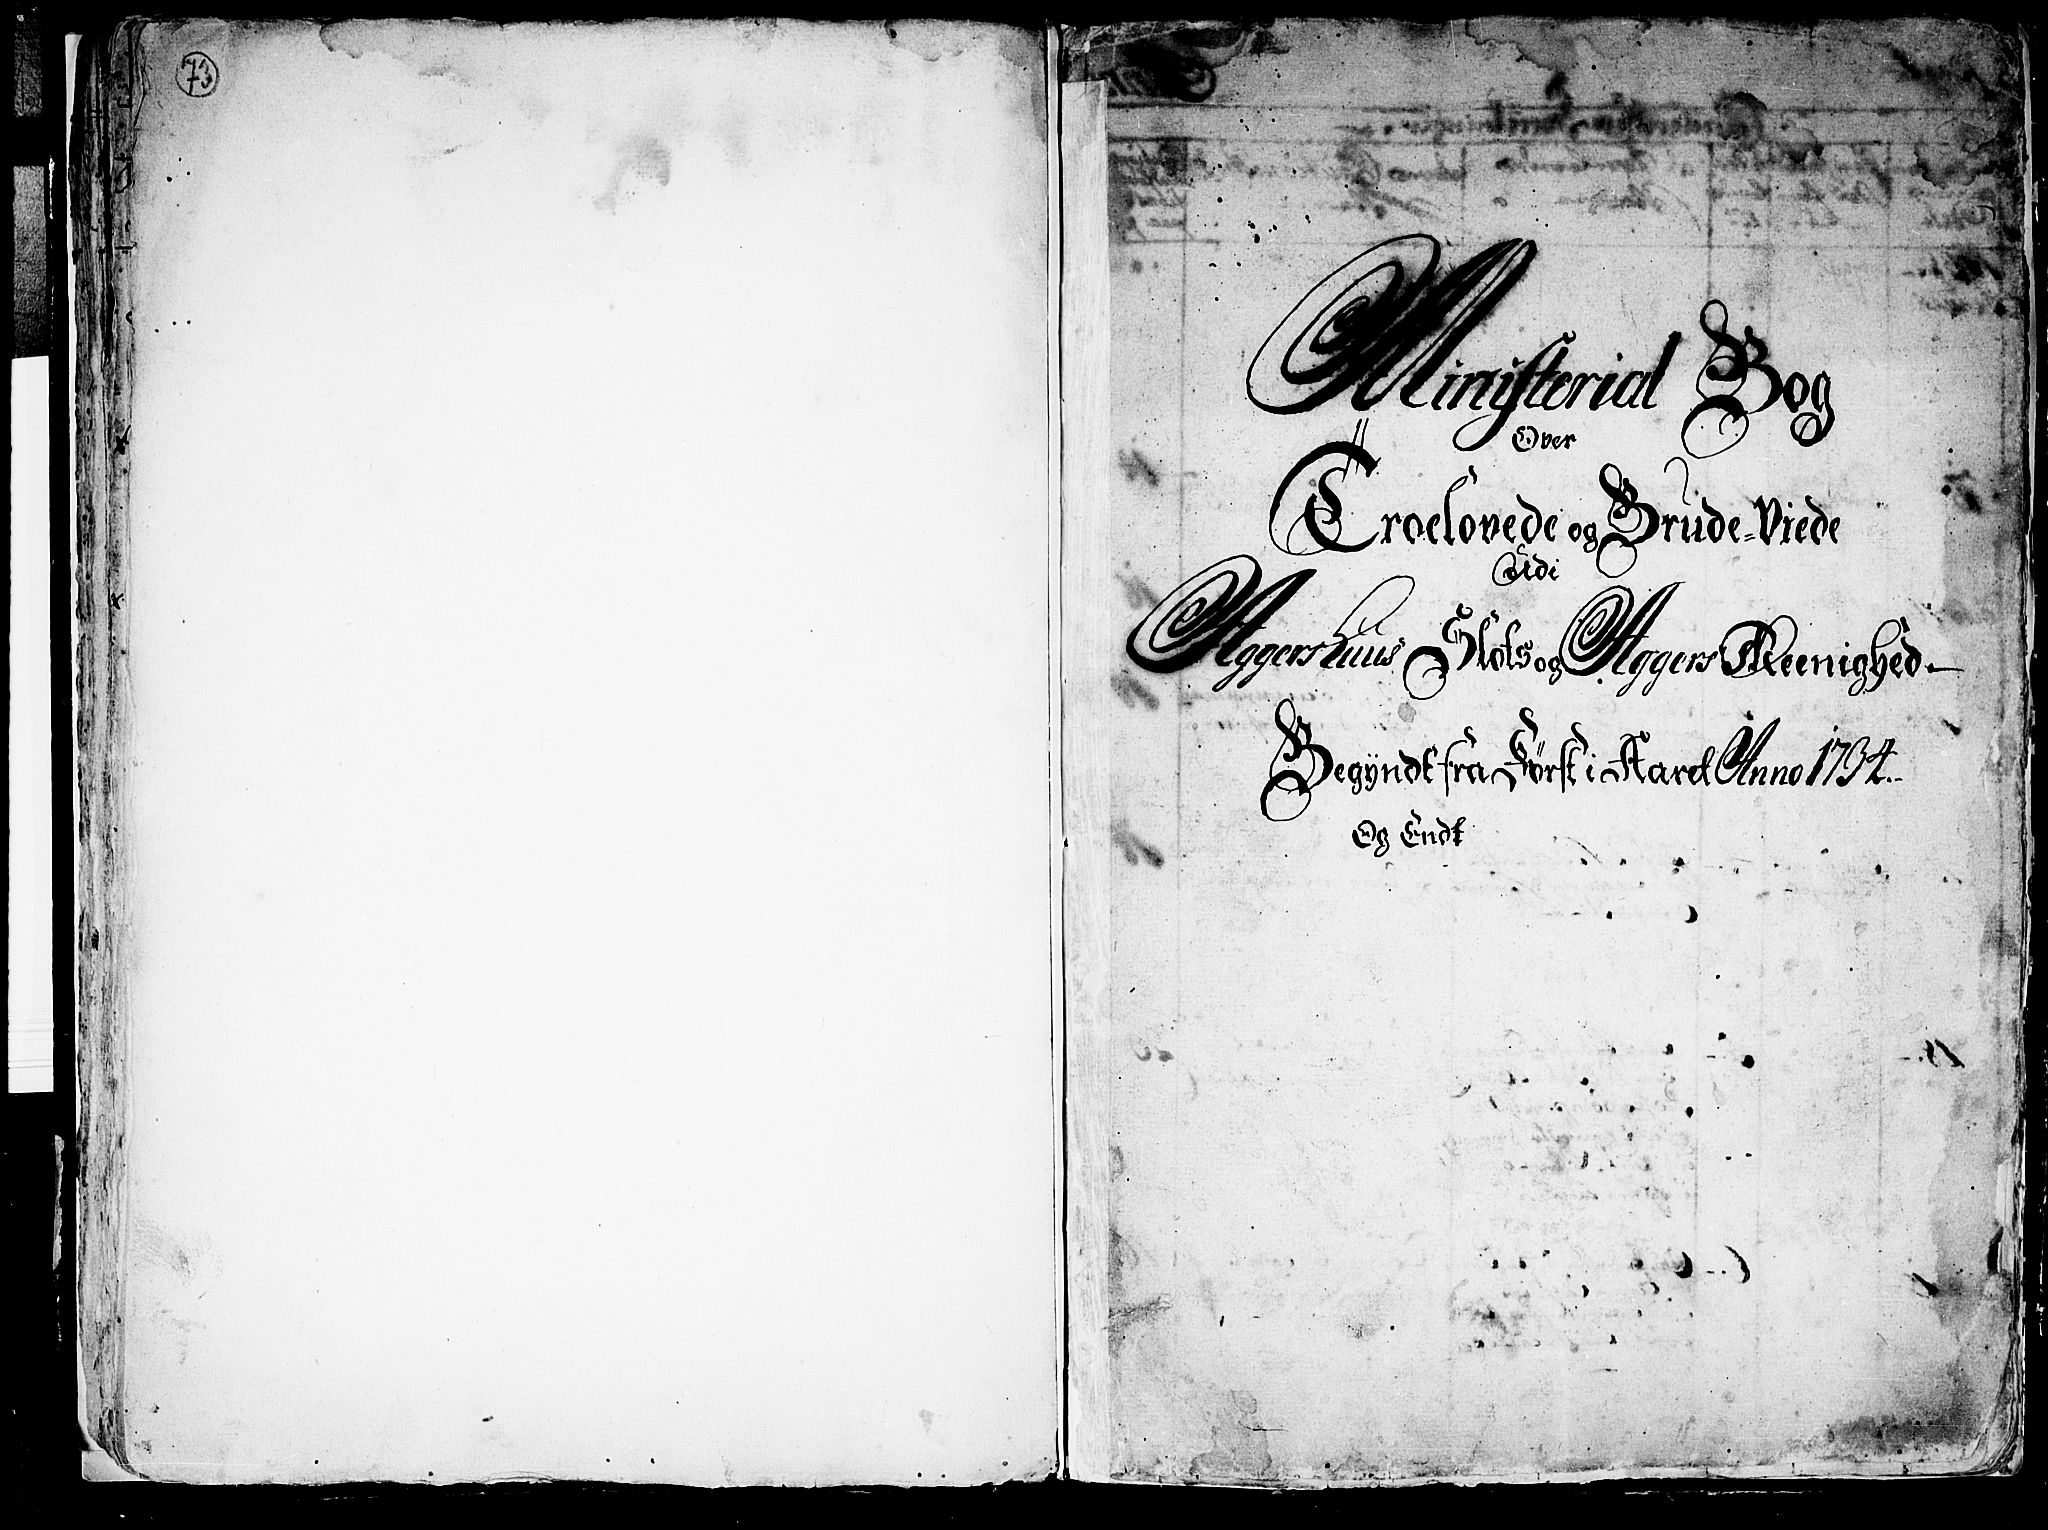 73
Ministerial Bog
Over
Troelovede og Brude=Viede
Udi
Aggershuus Slots og Aggers Meenighed
Begyndt fra Først i Aaret Anno 1734.
Og Endt